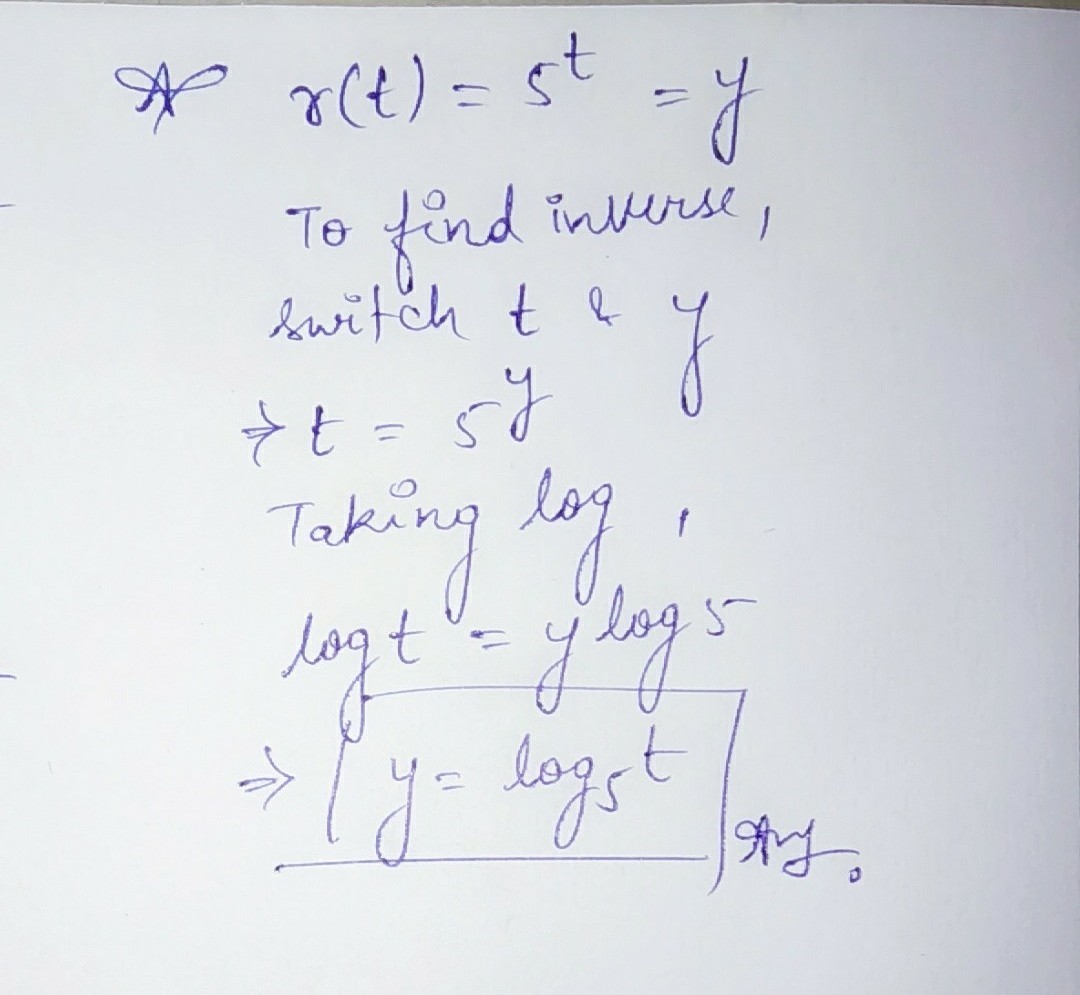 r(t) = 5^t = y
To find inverse,
switch t & y
⇒ t = 5^y
Taking log,
log t = y log 5
⇒ y = log₅t Ans.